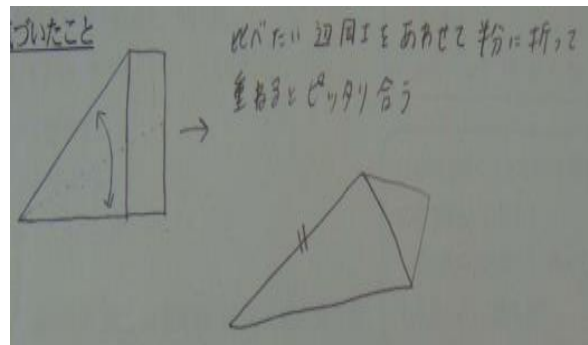 づいたこと
比べたい辺同士をあわせて半分に折って
重ねるとピッタリ合う